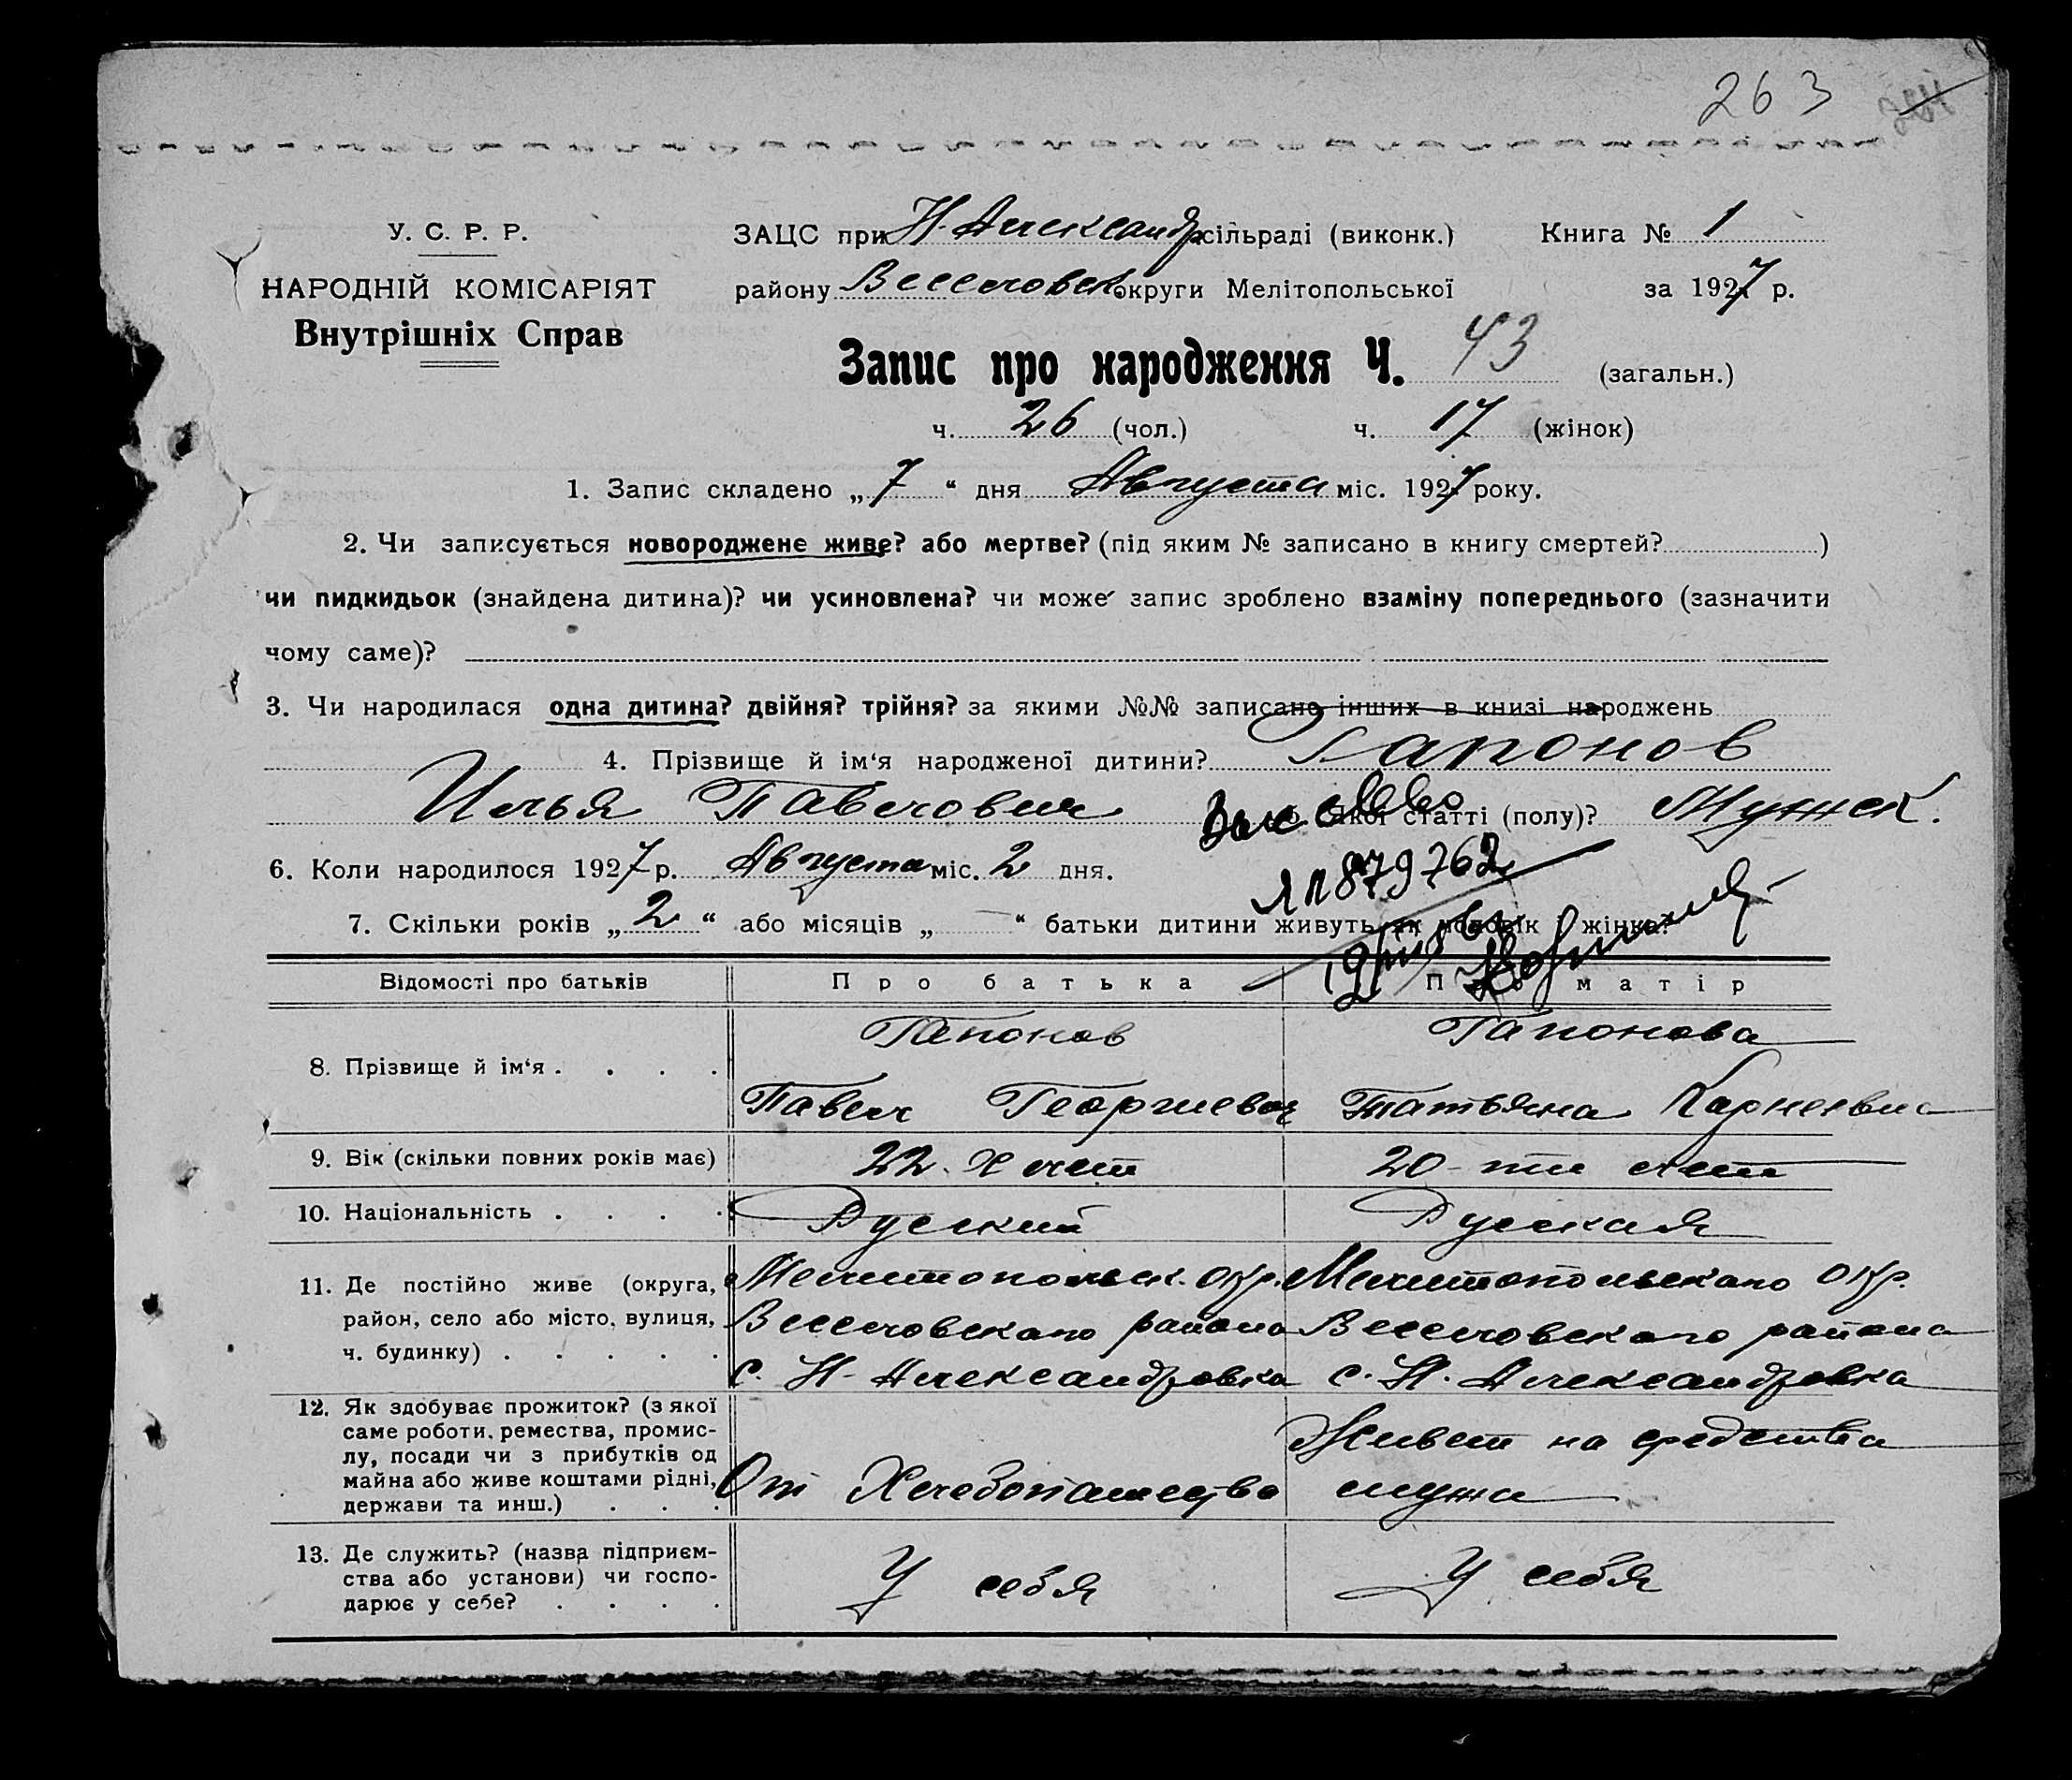 263
У. С. Р. Р.
НАРОДНІЙ КОМІСАРІЯТ
Внутрішніх Справ
ЗАЦС при Н. Александр сільраді (виконк.) Книга № 1
району Веселовск округи Мелітопольської за 1927 р.
Запис про народження Ч. 43 (загальн.)
ч. 26 (чол.) ч. 17 (жінок)
1. Запис складено „ 7 “ дня Августа міс. 1927 року.
2. Чи записується новороджене живе? або мертве? (під яким № записано в книгу смертей? )
чи пидкидьок (знайдена дитина)? чи усиновлена? чи може запис зроблено взаміну попереднього (зазначити
чому саме)?
3. Чи народилася одна дитина? двійня? трійня? за якими №№ записано інших в книзі народжень
4. Прізвище й ім'я народженої дитини? Гапонов
Илья Павлович якої статті (полу)? Мужск.
6. Коли народилося 1927 р. Августа міс. 2 дня.
879762
7. Скільки років „ 2 “ або місяців „ — “ батьки дитини живуть як чоловік і жінка?
Відомості про батьків Про батька Про матір
8. Прізвище й ім'я . . . . Гапонов Павел Георгиевич Гапонова Татьяна Карнеевна
9. Вік (скільки повних років має) 22-х лет 20-ти лет
10. Національність . . . . Руский Руская
11. Де постійно живе (округа, Мелитопольск. окр. Мелитопольскаго окр.
район, село або місто, вулиця, Веселовскаго района Веселовскаго района
ч. будинку) . . . . . с. Н-Александровка с. Н. Александровка
12. Як здобуває прожиток? (з якої
саме роботи, ремества, промис- Живет на средства
лу, посади чи з прибутків од
майна або живе коштами рідні, От Хлебопашества мужа
держави та инш.) . . .
13. Де служить? (назва підприєм-
ства або установи) чи госпо- У себя У себя
дарює у себе? . . . .